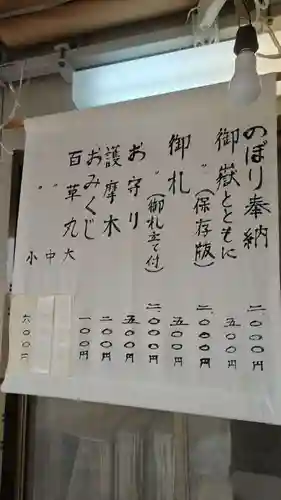 のぼり奉納 二、〇〇〇円
御嶽とともに 五〇〇円
〃 (保存版) 二、〇〇〇円
御札 五〇〇円
〃 (御札立て付) 二、〇〇〇円
お守り 五〇〇円
護摩木 二〇〇円
おみくじ 一〇〇円
百草丸 大
〃 中
〃 小 六〇〇円